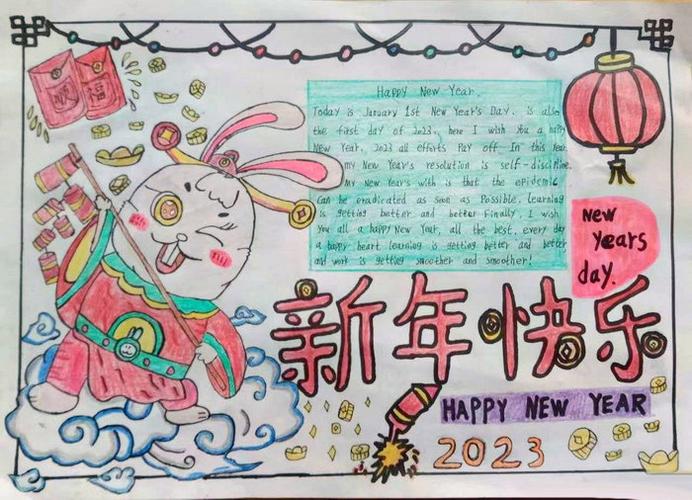 Happy New Year.
Today is January 1st New Year's Day. is also
the first day of 2023., here I wish you a happy
New Year, 2023 all efforts Pay off. In this year,
my New Year's resolution is self-discipline.
My New Year's wish is that the epidemic
Can be eradicated as soon as Possible. Learning
is getting better and better Finally, I wish
You all a happy New Year, all the best, every day
a happy heart learning is getting better and better
and work is getting smoother and smoother!
福
New
Years
day.
新年快乐
HAPPY NEW YEAR
2023